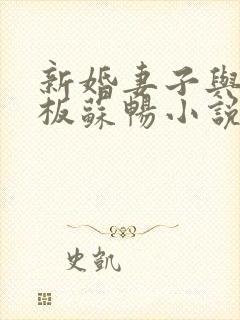 新婚妻子與
板蘇暢小說
史凱